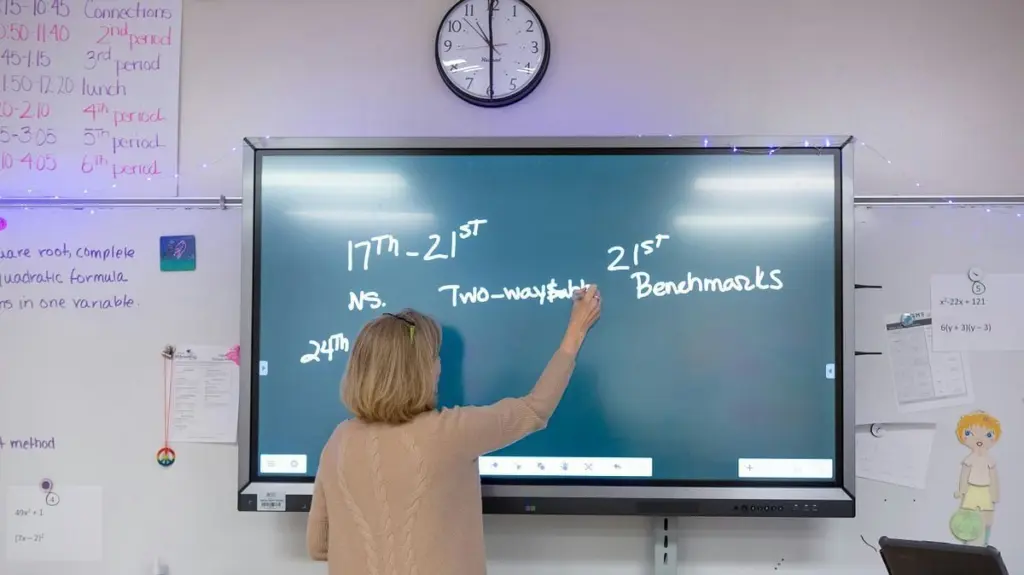 :15-10:45 Connections
0:50-11:40 2nd period
:45-1:15 3rd period
11:50-12:20 lunch
20-2:10 4th period
5-3:05 5th period
10-4:05 6th period
uare root, complete
quadratic formula
ns in one variable.
method
4
49x² + 1
(7x – 2)²
12
1
2
3
4
5
6
7
9
10
11
17Th - 21ST
NS.
Two-way
24Th
21ST
Benchmarks
5
x²-22x + 121
6(y + 3)(y – 3)